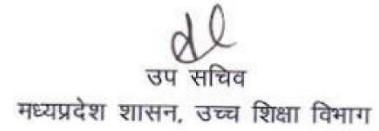 उप सचिव
मध्यप्रदेश शासन, उच्च शिक्षा विभाग